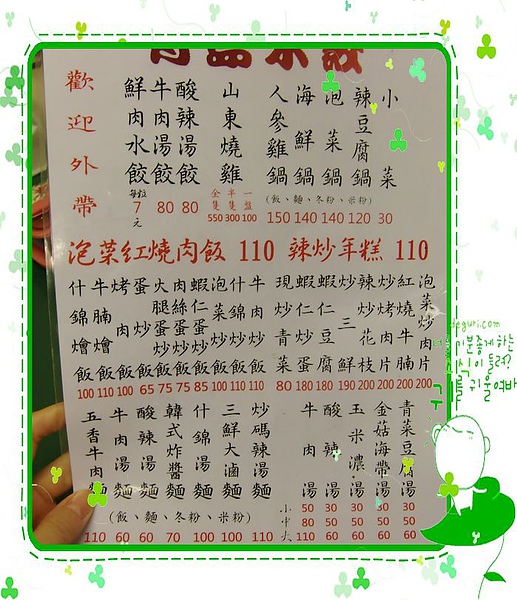 歡迎外帶
鮮肉水餃 每粒7元
牛肉湯餃 80
酸辣湯餃 80
山東燒雞 全隻550 半隻300 一盤100
人參雞鍋 150
海鮮鍋 140
泡菜鍋 140
辣豆腐鍋 120
(飯、麵、冬粉、米粉)
小菜 30
泡菜紅燒肉飯 110 辣炒年糕 110
什錦燴飯 100
牛腩燴飯 110
烤肉飯 100
蛋炒飯 65
火腿蛋炒飯 75
肉絲蛋炒飯 75
蝦仁蛋炒飯 85
泡菜炒飯 100
什錦炒飯 110
牛肉炒飯 110
現炒青菜 80
蝦仁炒蛋 180
蝦仁豆腐 180
炒三鮮 190
辣炒花枝 200
炒烤肉片 200
紅燒牛腩 200
泡菜炒肉片 200
五香牛肉麵 110
牛肉湯麵 60
酸辣湯麵 60
韓式炸醬麵 70
什錦湯麵 100
三鮮大滷麵 100
炒碼辣湯麵 110
(飯、麵、冬粉、米粉)
牛肉湯 小50 中80 大110
酸辣湯 30 50 60
玉米濃湯 30 50 60
金菇海帶湯 30 50 60
青菜豆腐湯 30 50 60